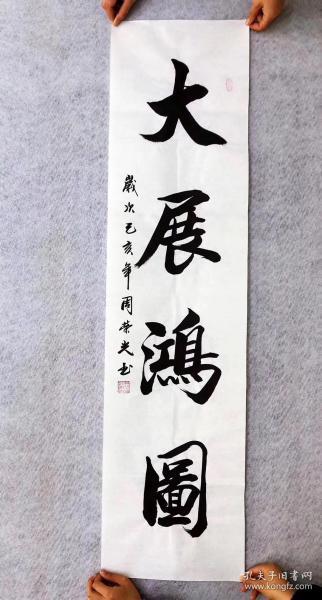 大展鴻圖
歲次己亥年周榮光书
孔夫子旧书网
www.kongfz.com